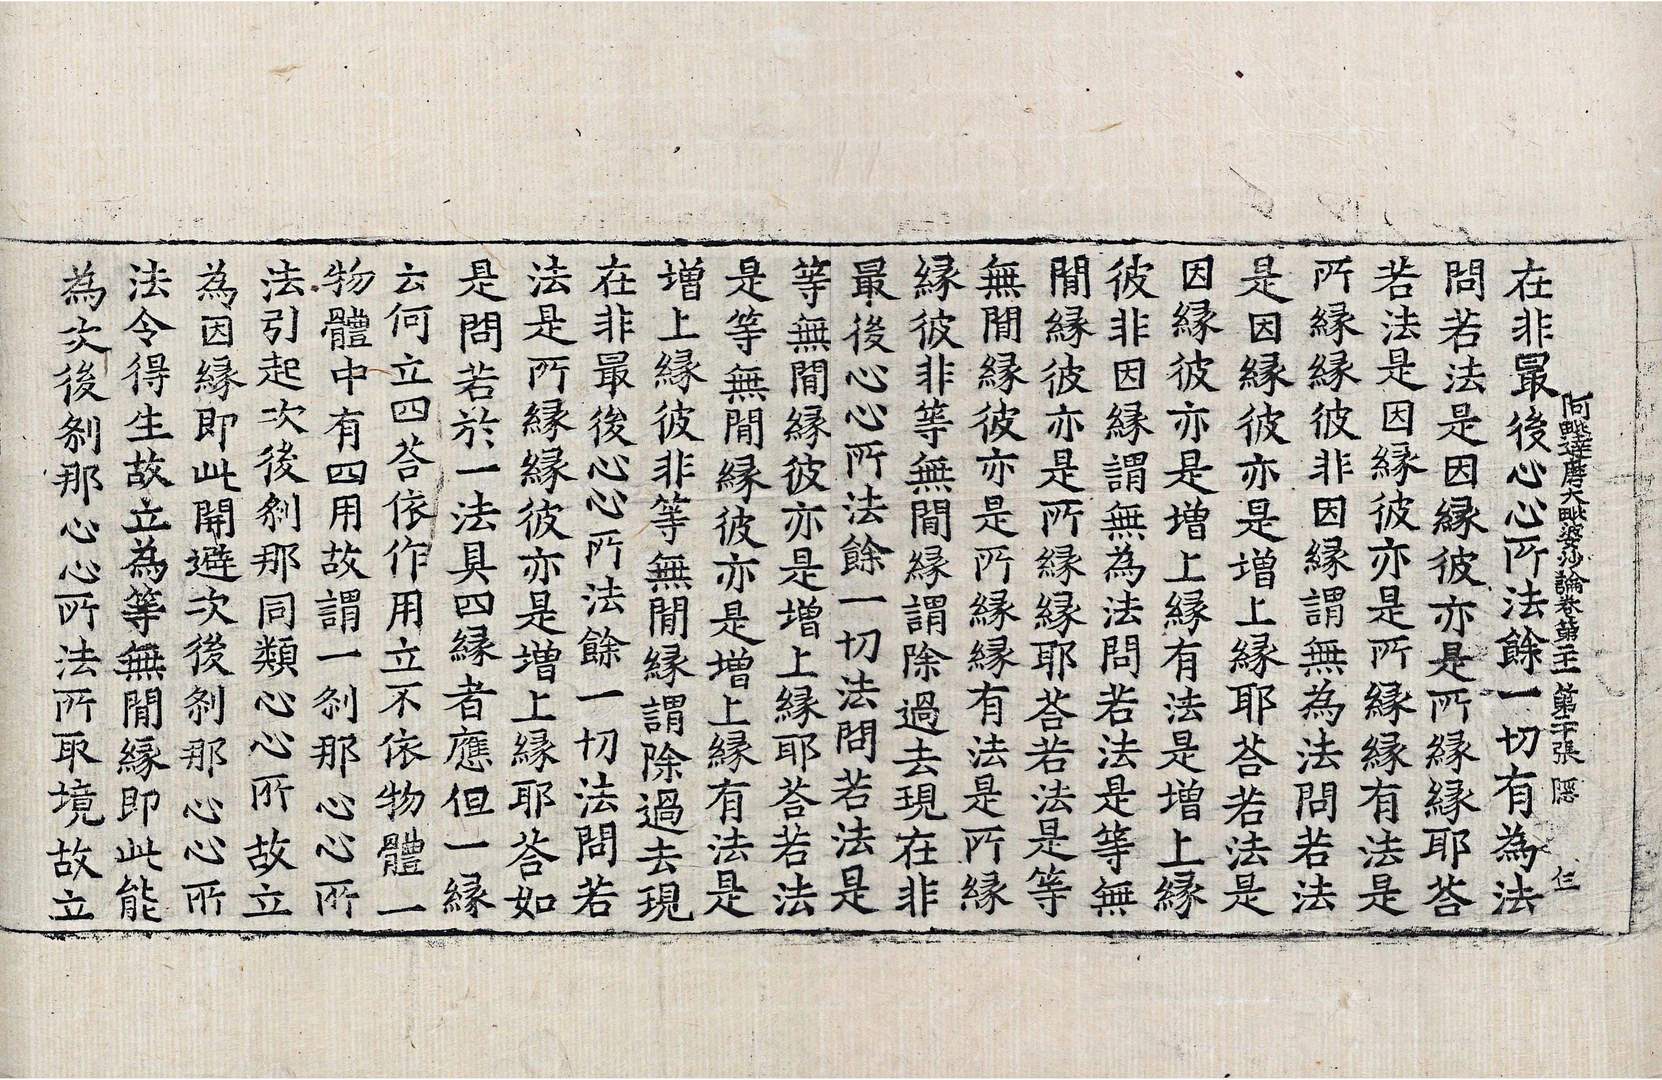 阿毗達磨大毗婆沙論卷第 第 張 隱
在非最後心心所法餘一切有為法
問若法是因縁彼亦是所縁縁耶荅
若法是因縁彼亦是所縁縁有法是
所縁縁彼非因縁謂無為法問若法
是因縁彼亦是增上縁耶荅若法是
因縁彼亦是增上縁有法是增上縁
彼非因縁謂無為法問若法是等無
閒縁彼亦是所縁縁耶荅若法是等
無閒縁彼亦是所縁縁有法是所縁
縁彼非等無閒縁謂除過去現在非
最後心心所法餘一切法問若法是
等無閒縁彼亦是增上縁耶荅若法
是等無閒縁彼亦是增上縁有法是
增上縁彼非等無閒縁謂除過去現
在非最後心心所法餘一切法問若
法是所縁縁彼亦是增上縁耶荅如
是問若於一法具四縁者應但一縁
云何立四荅依作用立不依物體一
物體中有四用故謂一剎那心心所
法引起次後剎那同類心心所故立
為因縁即此開避次後剎那心心所
法令得生故立為等無閒縁即此能
為次後剎那心心所法所取境故立